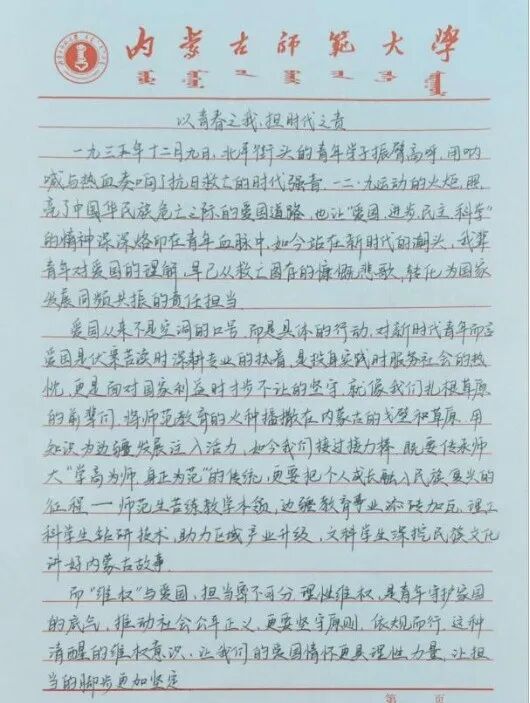 内蒙古师范大学
以青春之我,担时代之责
一九三五年十二月九日,北平街头的青年学子振臂高呼,用呐
喊与热血奏响了抗日救亡的时代强音.一二·九运动的火炬,照
亮了中国华民族危亡之际的爱国道路,也让"爱国,进步,民主,科学"
的精神深深烙印在青年血脉中,如今站在新时代的潮头,我辈
青年对爱国的理解,早已从救亡图存的慷慨悲歌,转化为国家
发展同频共振的责任担当.
爱国从来不是空洞的口号,而是具体的行动,对新时代青年而言
爱国是伏案苦读时深耕专业的执着,是投身实践时服务社会的热
忱,更是面对国家利益时寸步不让的坚守,就像我们扎根草原
的前辈们,将师范教育的火种播撒在内蒙古的戈壁和草原,用
知识为边疆发展注入活力,如今我们接过接力棒,既要传承师
大"学高为师,身正为范"的传统,更要把个人成长融入民族复兴的
征程——师范生苦练教学本领,边疆教育事业添砖加瓦,理工
科学生钻研技术,助力区域产业升级,文科学生深挖民族文化
讲好内蒙古故事.
而"维权"与爱国,担当密不可分,理性维权,是青年守护家国
的底气,推动社会公平正义,更要坚守原则,依规而行,这种
清醒的维权意识,让我们的爱国情怀更具理性力量,让担
当的脚步更加坚定.
第 页